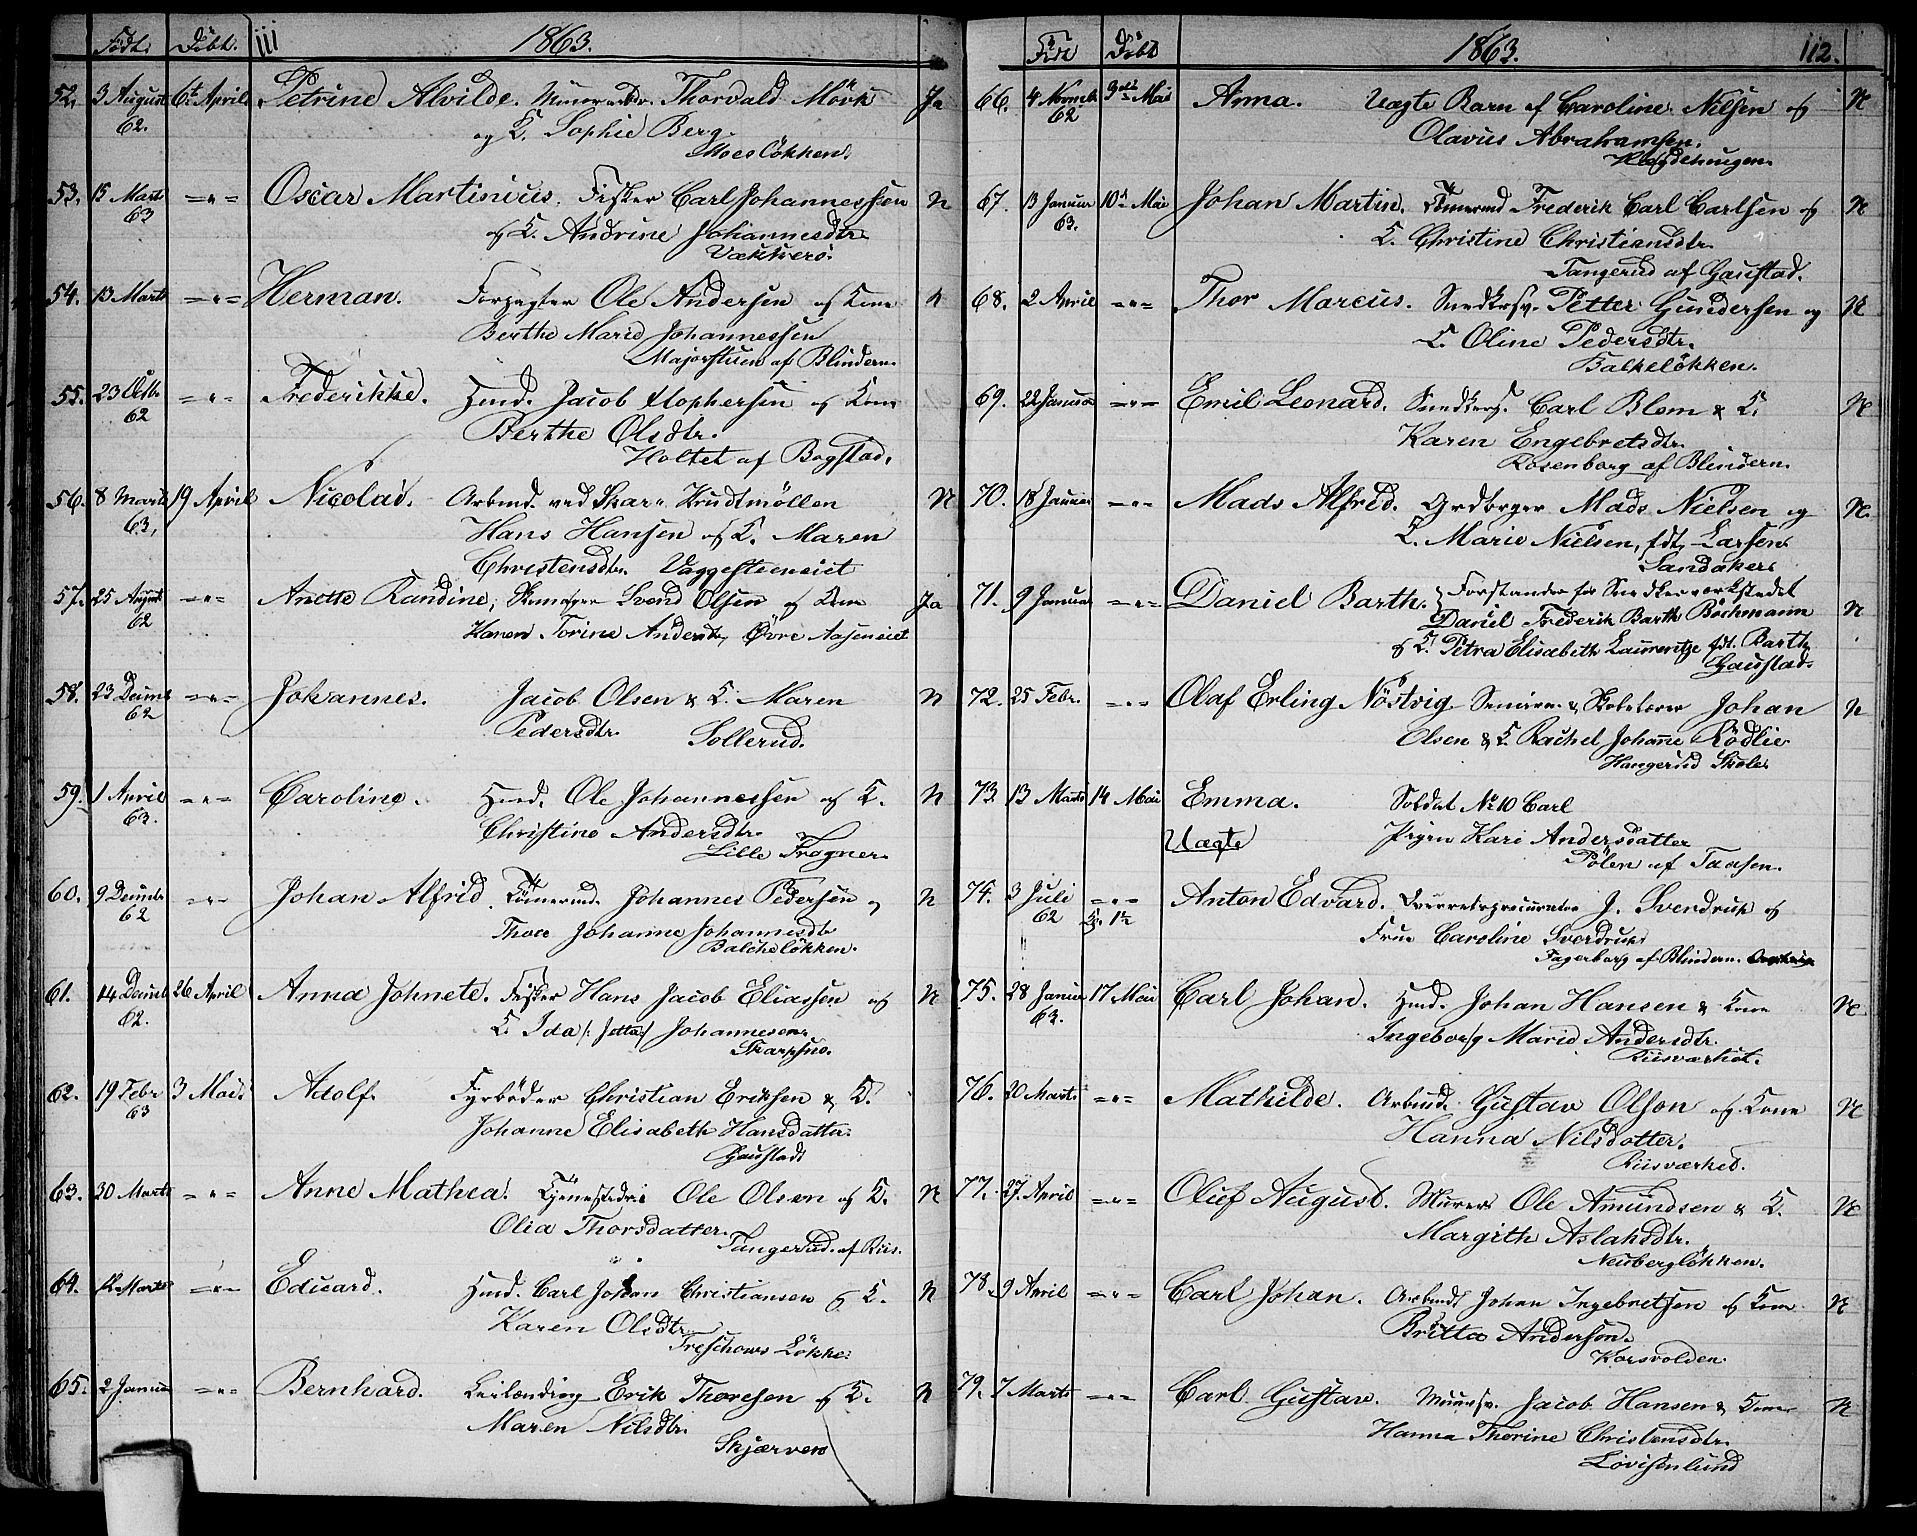 Født. Döbt. iii 1863.
52. 3 August 6te April Petrine Alvilde. Thorvald Mörk Ja
62. og K. Sophie Berg.
Moesløkken.
53. 15 Marts — " — Oscar Martinius. Fisker Carl Johannessen N
63 og K. Andrine Johannesdtr.
Vækkerö.
54. 13 Marts — " — Herman. Forpagter Ole Andersen og Kone N
Berthe Marie Johannessen
Majorstuen af Blindern.
55. 23 Octb. — " — Frederikke. Husmd. Jacob Klophersen og Kone
62 Berthe Olsdtr.
Holtet af Bogstad.
56. 8 Marts 19 April Nicolai. Arbmd. ved Skar Krudtmöllen N
63. Hans Hansen og K. Maren
Christensdtr. Vaggesteneiet
57. 25 August — " — Anette Randine, Skomager Svend Olsen og Kone Ja
62 Karen Torine Andersdtr, Øvre Aaseneiet
58. 23 Decmb — " — Johannes. Jacob Olsen & K. Maren N
62 Pedersdtr. Sollerud.
59. 1 April — " — Caroline. Husmd. Ole Johannessen og K. N
63. Christine Andersdtr.
Lille Frogner.
60. 9 Decmbr — " — Johan Alfrid. Tömermd. Johannes Pedersen og N
62 Thea Johanne Johannesdt
Balchelökken.
61. 14 Decmb 26 April Anna Johnete. Fisker Hans Jacob Eliassen og N
62. K. Ida /: Jetta :/ Johannesen.
Skarpsno.
62. 19 Febr 3 Mai. Adolf. Fyrböder Christian Eriksen & K.
63 Johanne Elisabeth Hansdatter.
Gaustad
63. 30 Marts — " — Anne Mathea. Tjenestedr. Ole Olsen og K. N
Olia Thorsdatter.
Tangerud af Riis.
64. 12 Marts — " — Eduard. Husmd. Carl Johan Christiansen og K. N
Karen Olsdtr.
Treschows Løkke.
65. 2 Januar — " — Bernhard. Leilænding Erik Thoresen og K. N
Maren Nilsdtr.
Skjærven
Föde Döbt 1863. 112.
66. 4 Novmb 3die Mai Anna. Uægte Barn af Caroline Nilsen og N
62 Olavus Abrahamsen.
67. 13 Januar 10de Mai Johan Martin. Tömermd Frederik Carl Carlsen og N
63. K. Christine Christiansdtr.
Tangerud af Gaustad.
68. 2 April — " — Thor Marcus. Snedkersv. Petter Gundersen og N
K. Oline Pedersdtr.
Balkeløkken.
69. 22 Januar — " — Emil Leonard. Snedkers. Carl Blom & K. N
Karen Engebretsdtr.
Rosenborg af Blindern.
70. 18 Januar — " — Mads Alfred. Grdbrger Mads Nielsen og N.
K. Marie Nielsen, fdt. Larsen.
Sandaker
71. 9 Januar — " — Daniel Barth. Forstander for Snedkerværkstedet
Daniel Frederik Barth Bochmann N
og K. Petra Elisabeth Laurentze fdt. Barth
Gaustad.
72. 25 Febr. — " — Olaf Erling Nöstvig. Seminar. & Skolelærer Johan N
Olsen & K. Rachel Johanne Rödlie
Hangerud Skole
73. 13 Marts 14 Mai Emma. Soldat No 10 Carl
Uægte Pigen Kari Andersdatter
Pölen af Taasen.
74. 3 Juli — " — Anton Edvard. Overretsprocurator J. Svendrup og
62 Frue Caroline Sverdrup
Fagerborg af Blindern.
75. 28 Januar 17 Mai Carl Johan. Husmd. Johan Hansen & Kone N
63. Ingeborg Marie Andersdtr.
Riisværket.
76. 20 Marts. — " — Mathilde. Arbmd. Gustav Olson og Kone N
Hanna Nilsdotter.
Riisværket.
77. 27. April — " — Oluf August. Murer Ole Amundsen & K. N
Margith Aslaksdtr.
Neuberglökken.
78. 9 April — " — Carl Johan. Arbmd Johan Ingebretsen og Kone N
Britta Anderson.
Korsvolden.
79. 7 Marts — " — Carl Gustav. Murersv. Jacob Hansen & Kone N
Hanna Thorine Christensdtr.
Lovisenlund